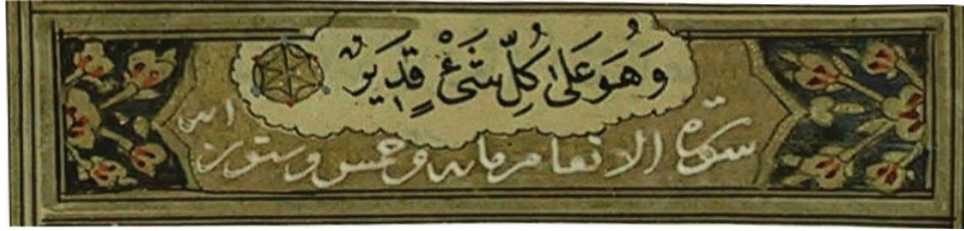 وَهُوَ عَلَىٰ كُلِّ شَىْءٍ قَدِيرٌ
سورة الانعام مايه وخمس وستون اية